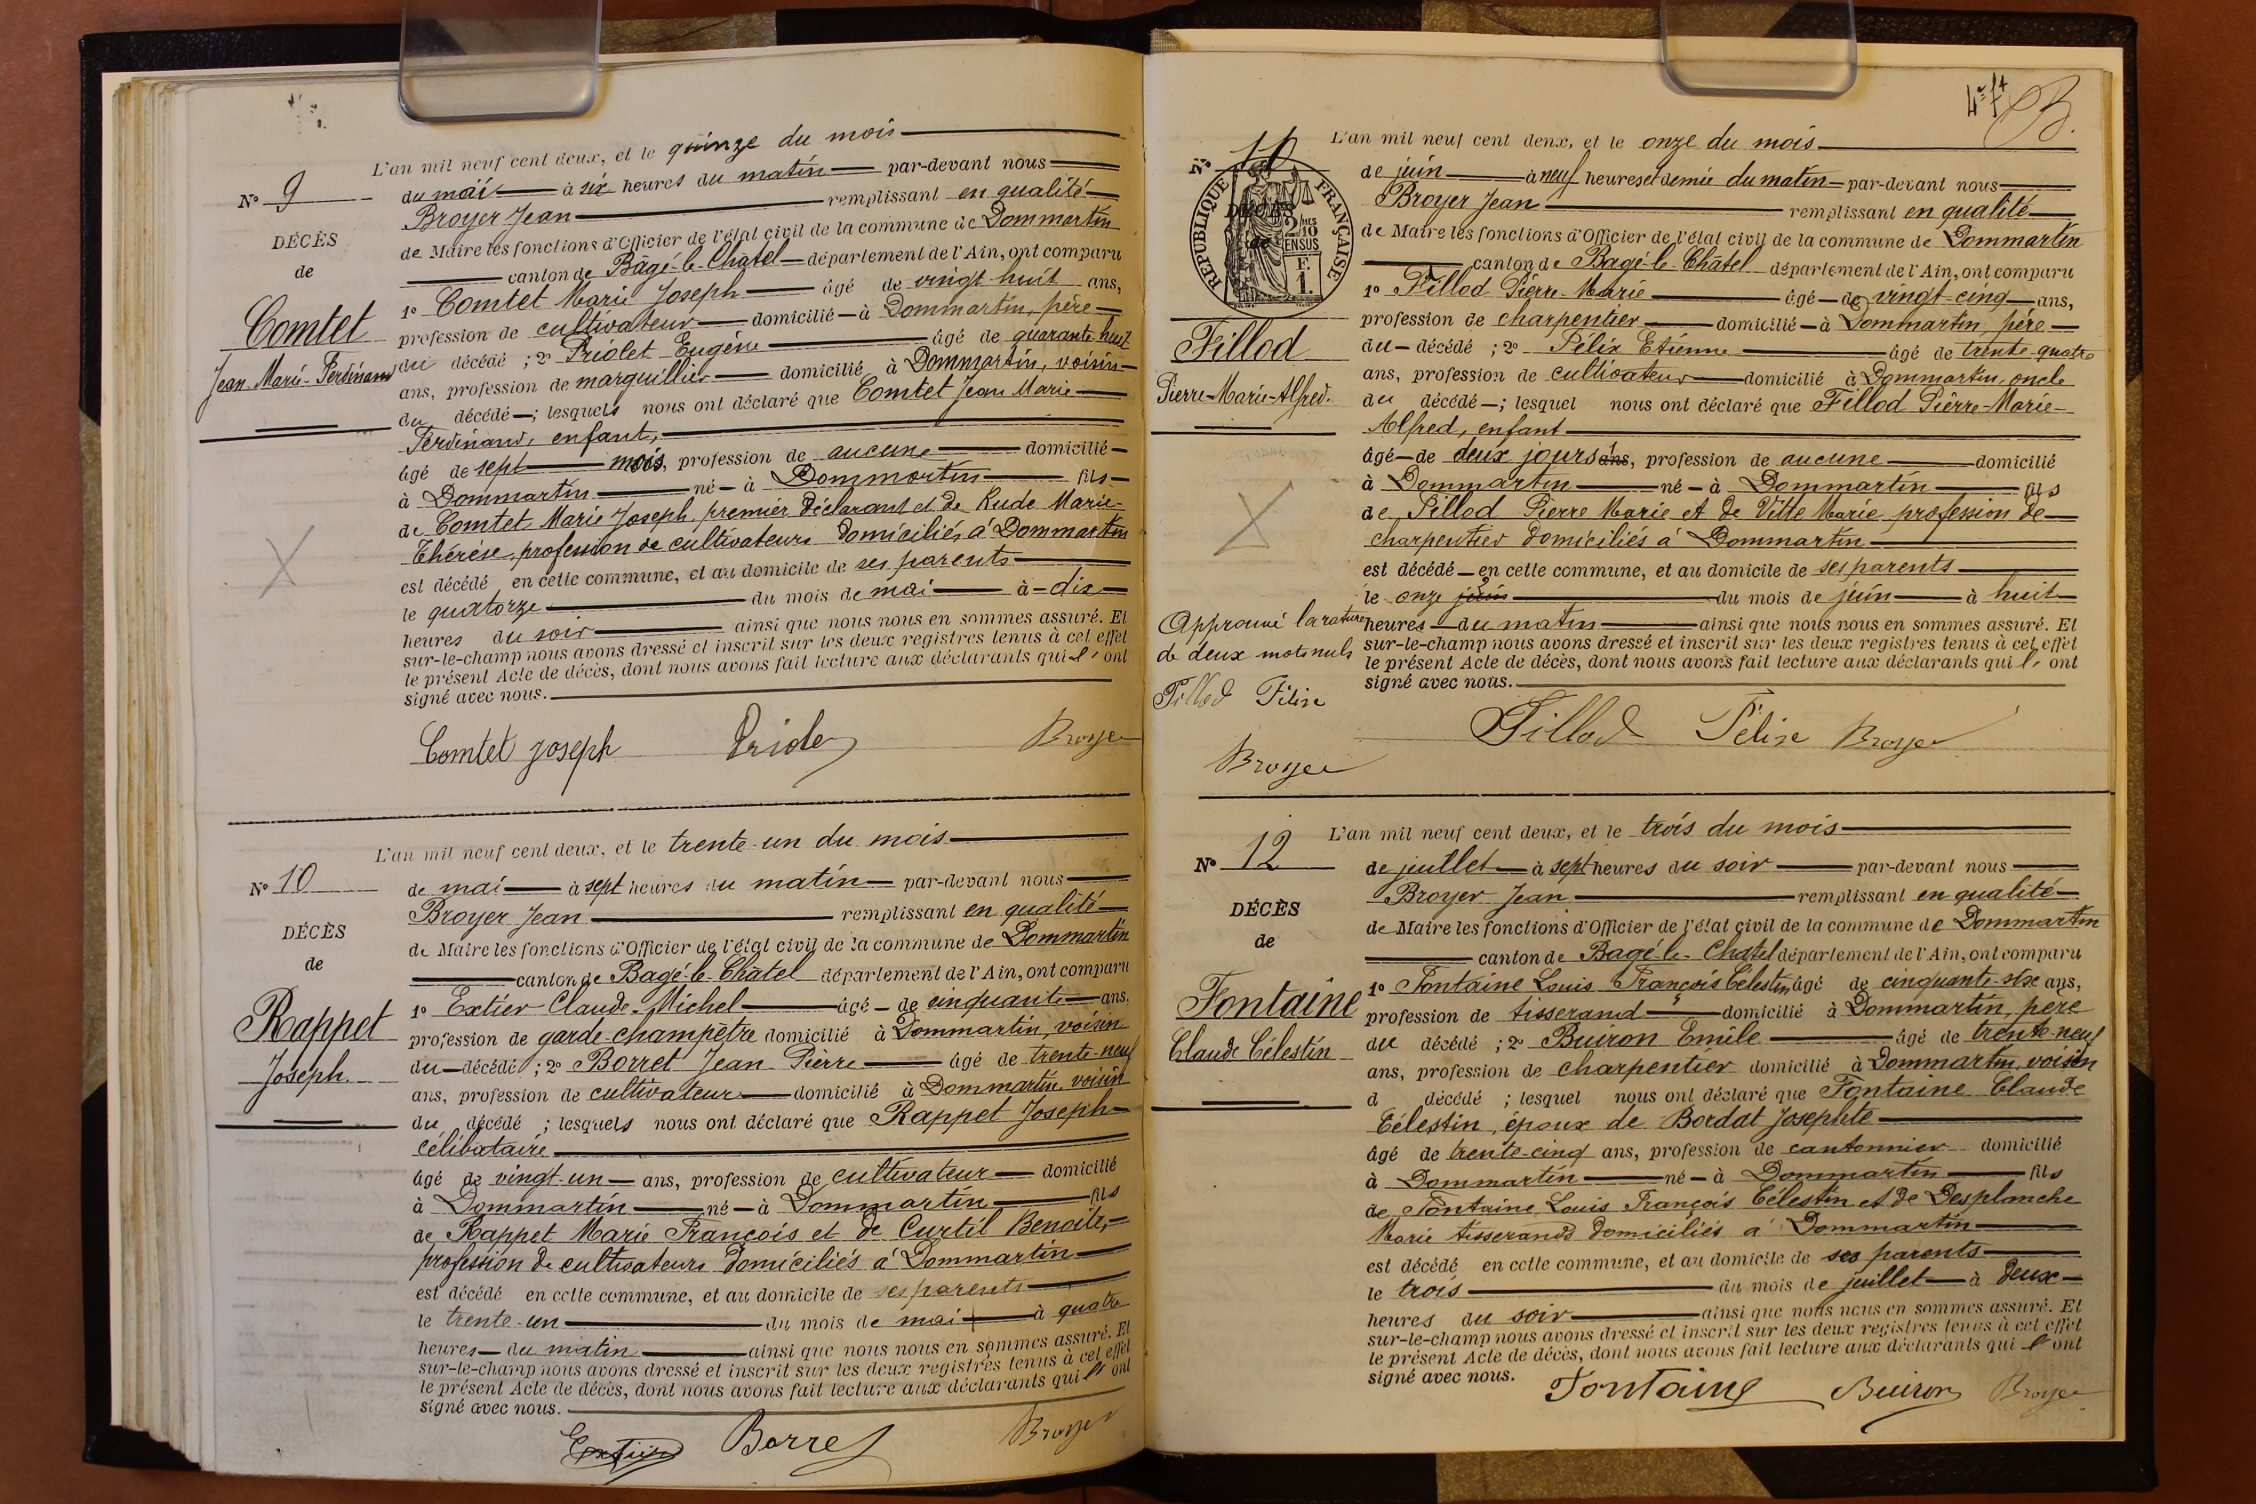 L'an mil neuf cent deux, et le quinze du mois
N° 9
du mai à six heures du matin par-devant nous
Broyer Jean remplissant en qualité
DÉCÈS
de Maire les fonctions d'Officier de l'état civil de la commune de Dommartin
de
canton de Bâgé-le-Châtel département de l'Ain, ont comparu
1° Comtet Marie Joseph âgé de vingt-huit ans,
Comtet
profession de cultivateur domicilié à Dommartin, père
Jean-Marie-Ferdinand
du décédé ; 2° Priolet Eugène âgé de quarante-huit
ans, profession de marguillier domicilié à Dommartin, voisin
du décédé ; lesquels nous ont déclaré que Comtet Jean Marie
Ferdinand, enfant,
âgé de sept mois, profession de aucune domicilié
à Dommartin né à Dommartin fils
de Comtet Marie Joseph, premier déclarant et de Rude Marie-
Thérèse, profession de cultivateurs domiciliés à Dommartin
est décédé en cette commune, et au domicile de ses parents
le quatorze du mois de mai à dix
heures du soir ainsi que nous nous en sommes assuré. Et
sur-le-champ nous avons dressé et inscrit sur les deux registres tenus à cet effet
le présent Acte de décès, dont nous avons fait lecture aux déclarants qui l' ont
signé avec nous.
Comtet Joseph Priolet Broyer
L'an mil neuf cent deux, et le trente-un du mois
N° 10
de mai à sept heures du matin par-devant nous
Broyer Jean remplissant en qualité
DÉCÈS
de Maire les fonctions d'Officier de l'état civil de la commune de Dommartin
de
canton de Bagé-le-Châtel département de l'Ain, ont comparu
1° Extier Claude-Michel âgé de cinquante ans,
Rappet
profession de garde-champêtre domicilié à Dommartin, voisin
Joseph.
du décédé ; 2° Borret Jean Pierre âgé de trente-neuf
ans, profession de cultivateur domicilié à Dommartin, voisin
du décédé ; lesquels nous ont déclaré que Rappet Joseph
célibataire
âgé de vingt-un ans, profession de cultivateur domicilié
à Dommartin né à Dommartin fils
de Rappet Marie François et de Curtil Benoite,
profession de cultivateurs domiciliés à Dommartin
est décédé en cette commune, et au domicile de ses parents
le trente-un du mois de mai à quatre
heures du matin ainsi que nous nous en sommes assuré. Et
sur-le-champ nous avons dressé et inscrit sur les deux registres tenus à cet effet
le présent Acte de décès, dont nous avons fait lecture aux déclarants qui l' ont
signé avec nous.
Extier Borret Broyer
4e ft
L'an mil neuf cent deux, et le onze du mois
N° 11
de juin à neuf heures et demie du matin par-devant nous
RÉPUBLIQUE FRANÇAISE
DÉCÈS
de
2/10 ENSUS
F. 1.
Broyer Jean remplissant en qualité
de Maire les fonctions d'Officier de l'état civil de la commune de Dommartin
canton de Bagé-le-Châtel département de l'Ain, ont comparu
1° Fillod Pierre-Marie âgé de vingt-cinq ans,
profession de charpentier domicilié à Dommartin, père
Fillod
du décédé ; 2° Félix Etienne âgé de trente-quatre
Pierre-Marie-Alfred.
ans, profession de cultivateur domicilié à Dommartin, oncle
du décédé ; lesquel nous ont déclaré que Fillod Pierre-Marie-
Alfred, enfant
âgé de deux jours ans, profession de aucune domicilié
à Dommartin né à Dommartin fils
de Fillod Pierre Marie et de Vitte Marie profession de
charpentier domiciliés à Dommartin
est décédé en cette commune, et au domicile de ses parents
le onze juin du mois de juin à huit
heures du matin ainsi que nous nous en sommes assuré. Et
sur-le-champ nous avons dressé et inscrit sur les deux registres tenus à cet effet
le présent Acte de décès, dont nous avons fait lecture aux déclarants qui l' ont
signé avec nous.
Approuvé la rature
de deux mots nuls
Fillod Félix
Broyer
Fillod Félix Broyer
L'an mil neuf cent deux, et le trois du mois
N° 12
de juillet à sept heures du soir par-devant nous
Broyer Jean remplissant en qualité
DÉCÈS
de Maire les fonctions d'Officier de l'état civil de la commune de Dommartin
de
canton de Bagé-le-Chatel département de l'Ain, ont comparu
1° Fontaine Louis François Célestin âgé de cinquante-six ans,
Fontaine
profession de tisserand domicilié à Dommartin, père
Claude Célestin
du décédé ; 2° Buiron Emile âgé de trente-neuf
ans, profession de charpentier domicilié à Dommartin, voisin
d décédé ; lesquel nous ont déclaré que Fontaine Claude
Célestin, époux de Bordat Josephte
âgé de trente-cinq ans, profession de cantonnier domicilié
à Dommartin né à Dommartin fils
de Fontaine Louis François Célestin et de Desplanche
Marie tisserands domiciliés à Dommartin
est décédé en cette commune, et au domicile de ses parents
le trois du mois de juillet à deux
heures du soir ainsi que nous nous en sommes assuré. Et
sur-le-champ nous avons dressé et inscrit sur les deux registres tenus à cet effet
le présent Acte de décès, dont nous avons fait lecture aux déclarants qui l' ont
signé avec nous.
Fontaine Buiron Broyer